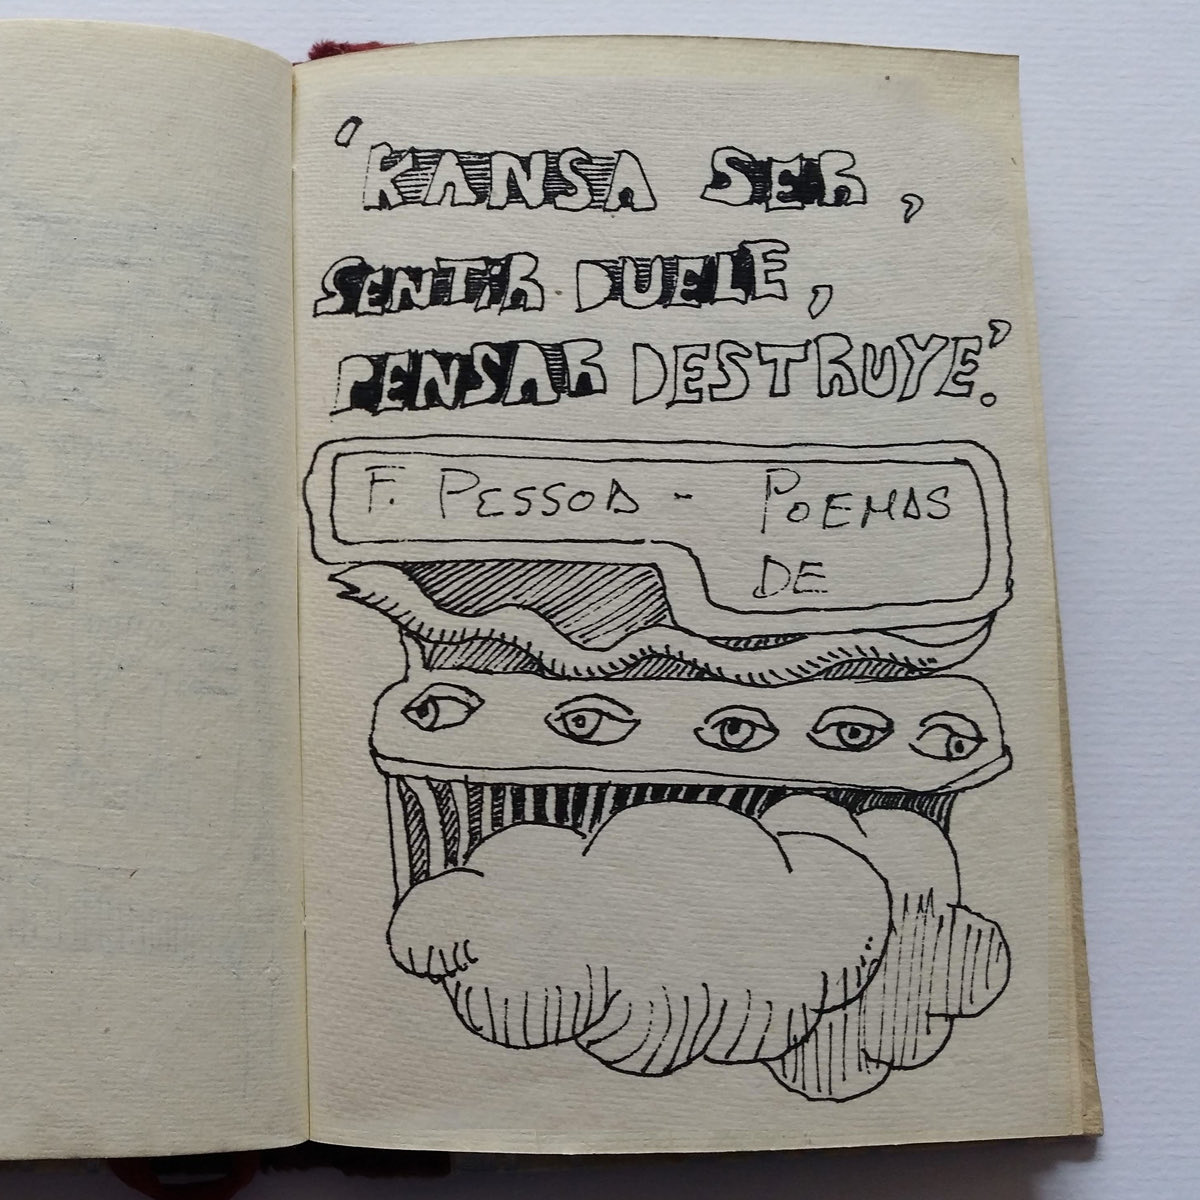 'KANSA SER,
SENTiR DUELE,
PENSAR DESTRUYE'.
F. PESSOA - POEMAS
DE